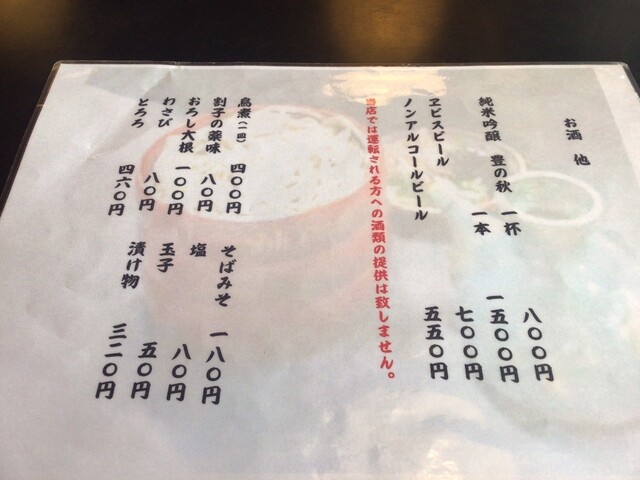 お酒 他
純米吟醸 豊の秋 一杯 八〇〇円
一本 一五〇〇円
ヱビスビール 七〇〇円
ノンアルコールビール 五五〇円
当店では運転される方への酒類の提供は致しません。
鳥煮 四〇〇円
割子の薬味 八〇円
おろし大根 一〇〇円
わさび 八〇円
とろろ 四六〇円
そばみそ 一八〇円
塩 八〇円
玉子 五〇円
漬け物 三二〇円